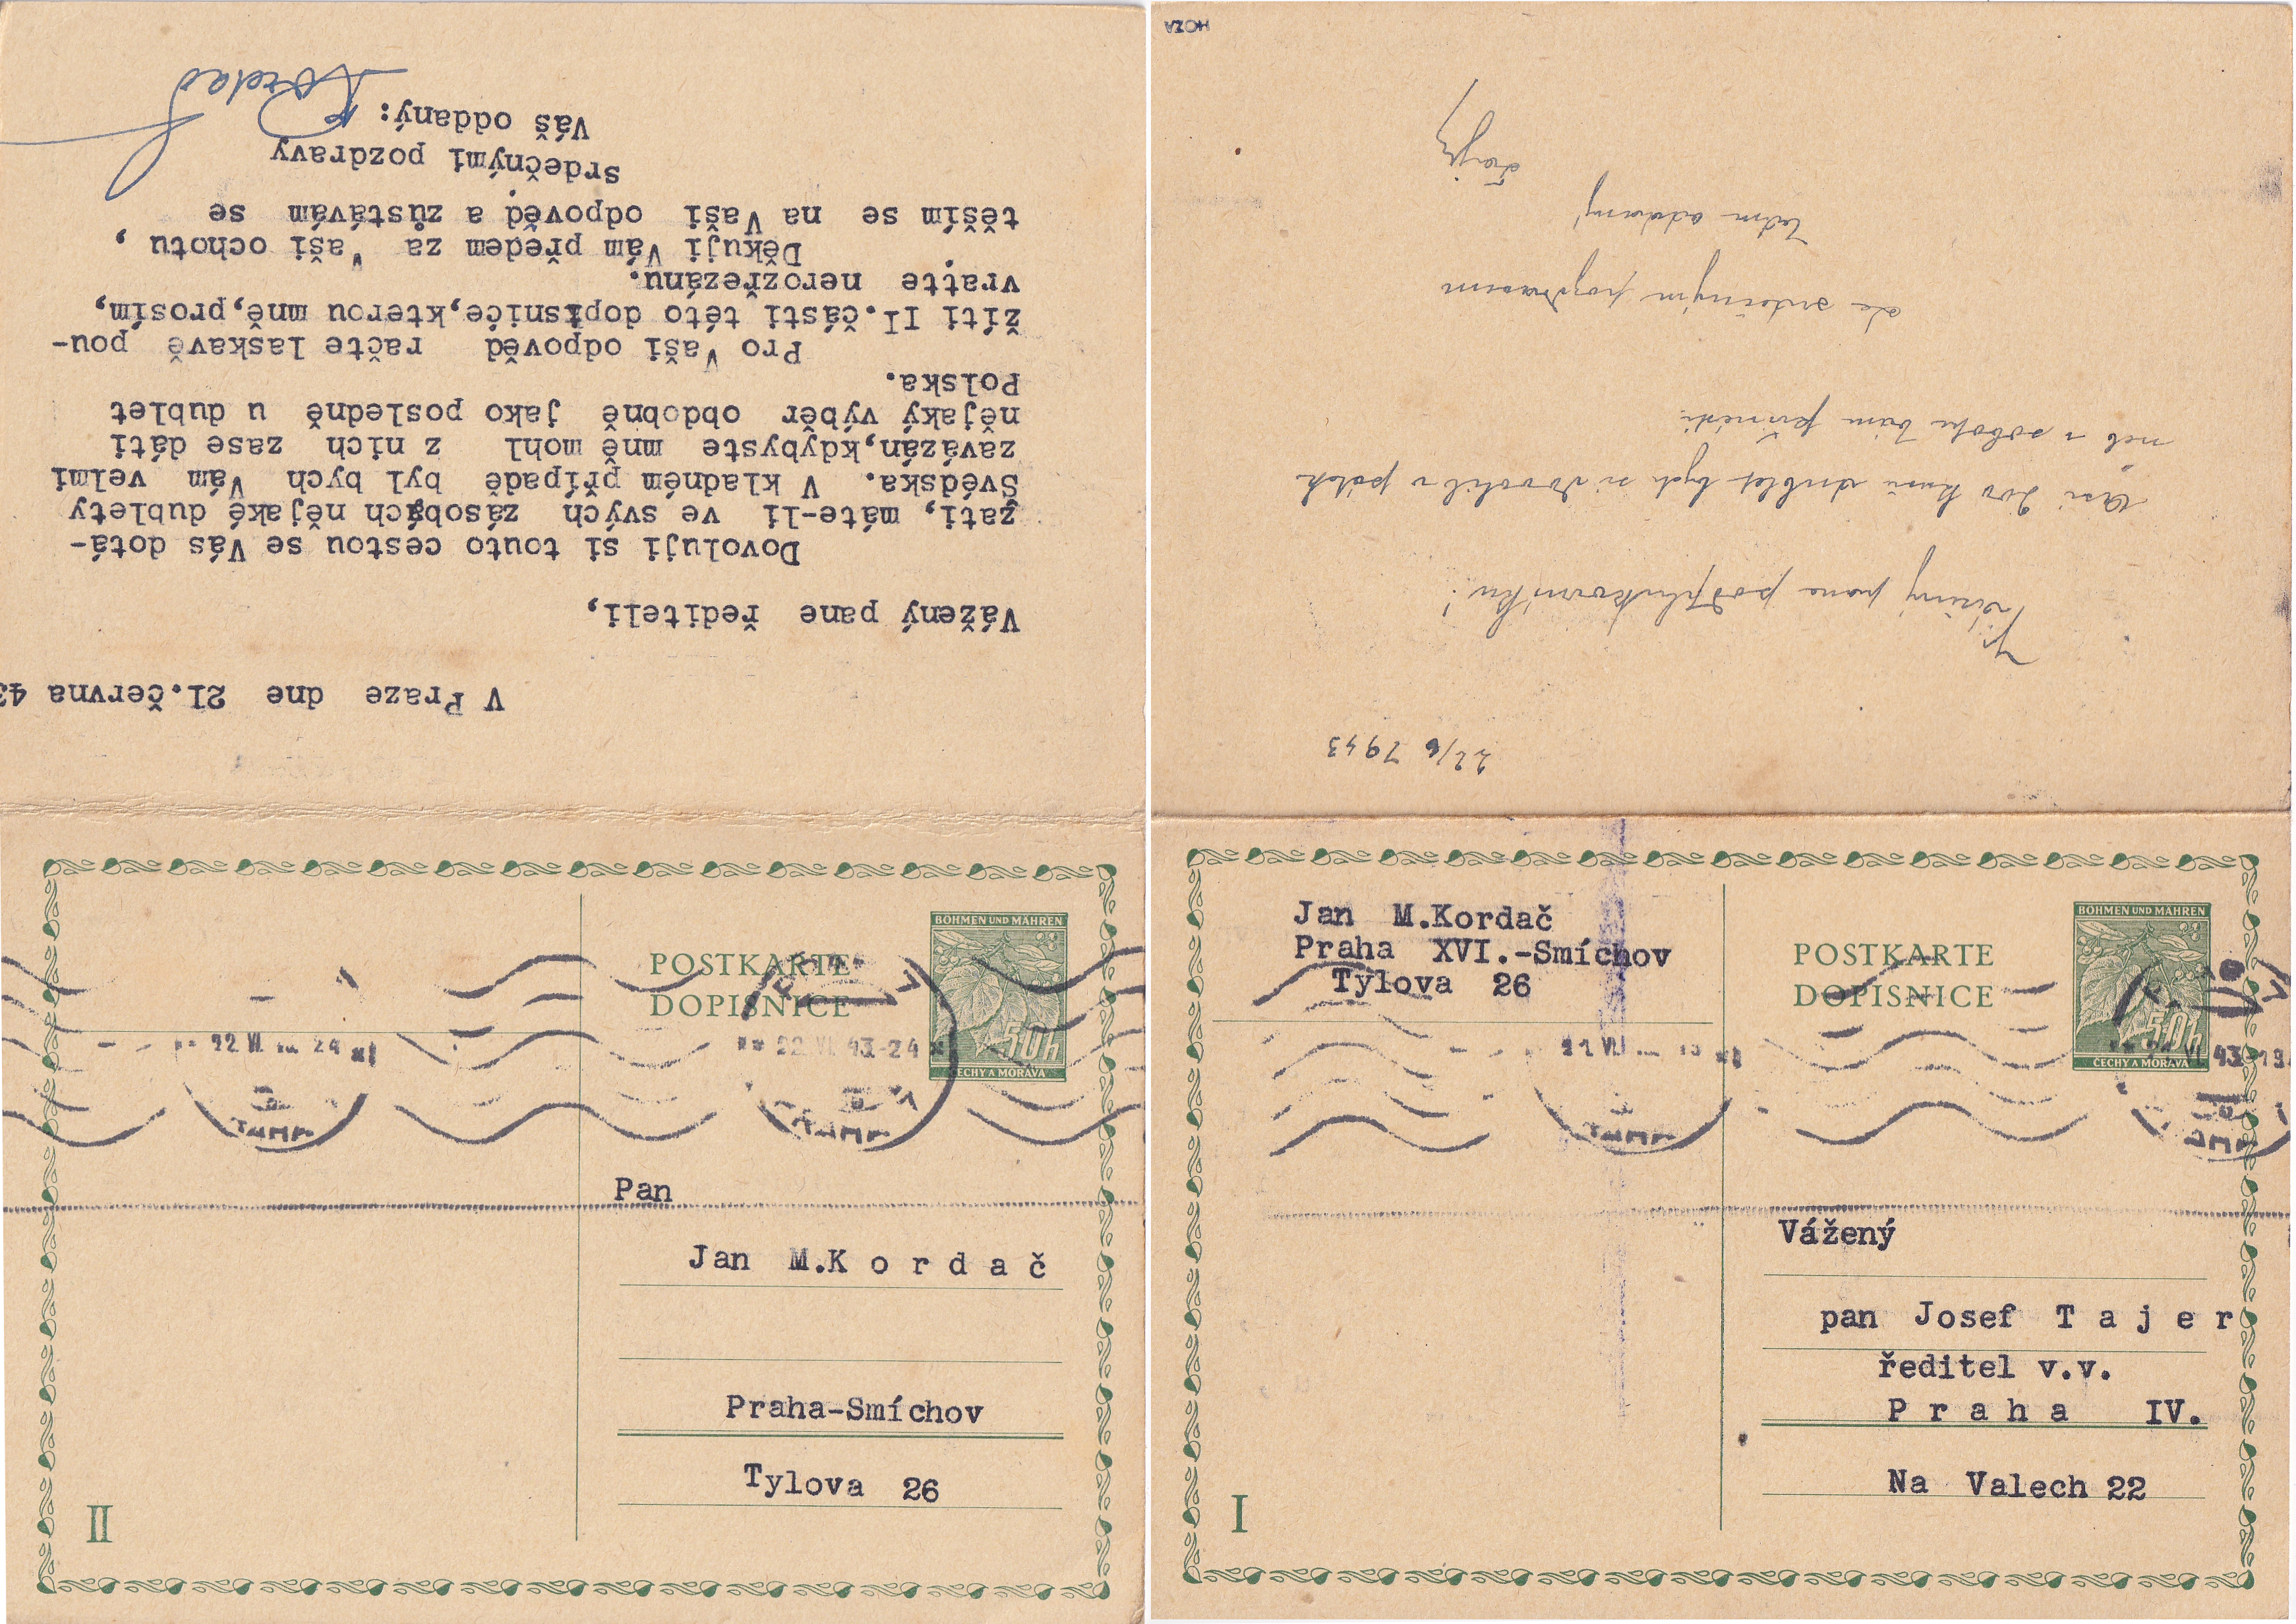 V Praze dne 21.června 43
Vážený pane řediteli,
Dovoluji si touto cestou se Vás dotá-
zati, máte-li ve svých zásobách nějaké dublety
Švédska. V kladném případě byl bych Vám velmi
zavázán,kdybyste mně mohl z nich zase dáti
nějaký výběr obdobně jako posledně u dublet
Polska.
Pro Vaši odpověd račte laskavě pou-
žíti II.části této dopisnice,kterou mně,prosím,
vraťte nerozřezánu.
Děkuji Vám předem za Vaši ochotu ,
těším se na Vaši odpověd a zůstávám se
srdečnými pozdravy
Váš oddaný:
Kordač
POSTKARTE
DOPISNICE
BÖHMEN UND MÄHREN
50h
ČECHY A MORAVA
22 VI 43-24
Pan
Jan M.K o r d a č
Praha-Smíchov
Tylova 26
II
HOZA
22/6 1943
Vážený pane podplukovníku!
Asi 200 kusů dublet bych si dovolil v pátek
neb v sobotu Vám přinésti.
Se srdečným pozdravem
Vám oddaný
Tajer
Jan M.Kordač
Praha XVI.-Smíchov
Tylova 26
POSTKARTE
DOPISNICE
BÖHMEN UND MÄHREN
50h
ČECHY A MORAVA
VI 43-19
Vážený
pan Josef T a j e r
ředitel v.v.
P r a h a IV.
Na Valech 22
I